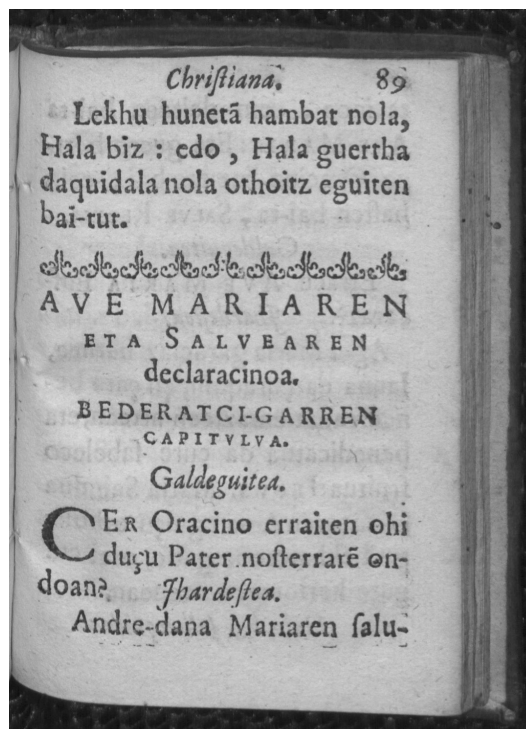 Chriſtiana. 89
Lekhu hunetã hambat nola,
Hala biz : edo , Hala guertha
daquidala nola othoitz eguiten
bai-tut.
AVE MARIAREN
ETA SALVEAREN
declaracinoa.
BEDERATCI-GARREN
CAPITVLVA.
Galdeguitea.
CER Oracino erraiten ohi
duçu Pater noſterrarẽ on-
doan? Jhardeſtea.
Andre-dana Mariaren ſalu-